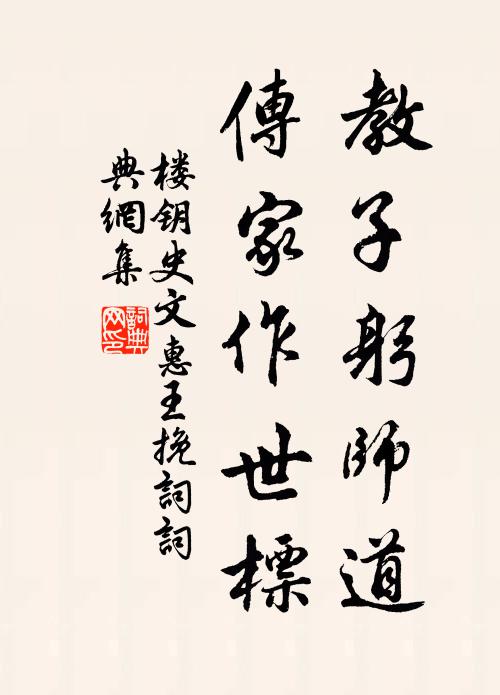 教子躬師道
傳家作世標
楼钥史文惠王挽詞詞
典網集
詞典
网印